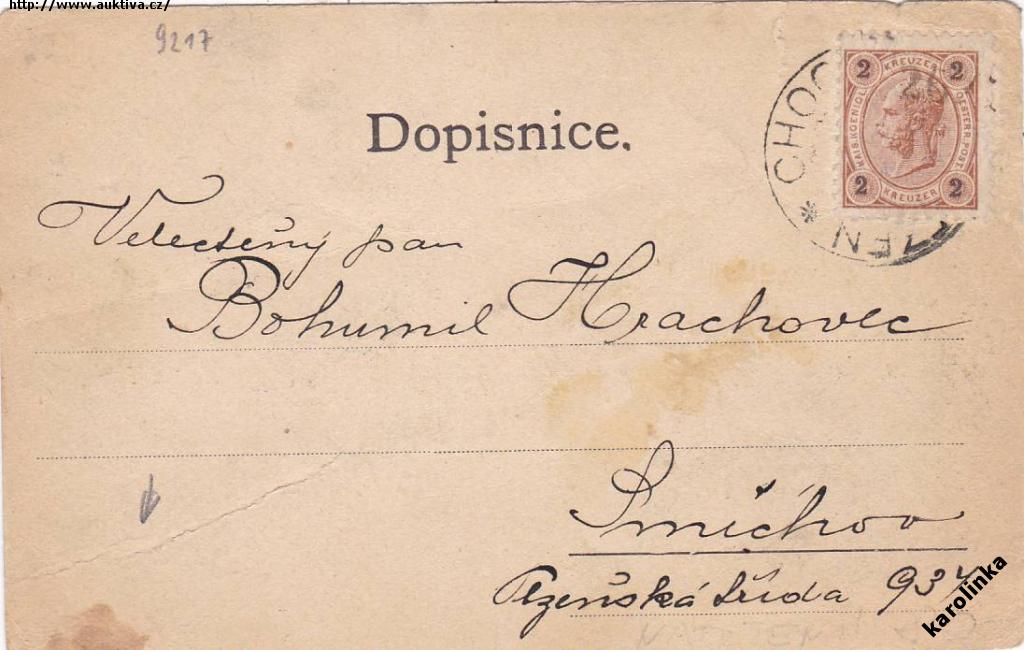 http://www.auktiva.cz/
9217
Dopisnice.
2 KREUZER 2
KAIS. KOENIGL. OESTERR. POST.
2 KREUZER 2
Velectěný pan
Bohumil Hrachovec
Smíchov
Plzeňská třída 934
karolinka